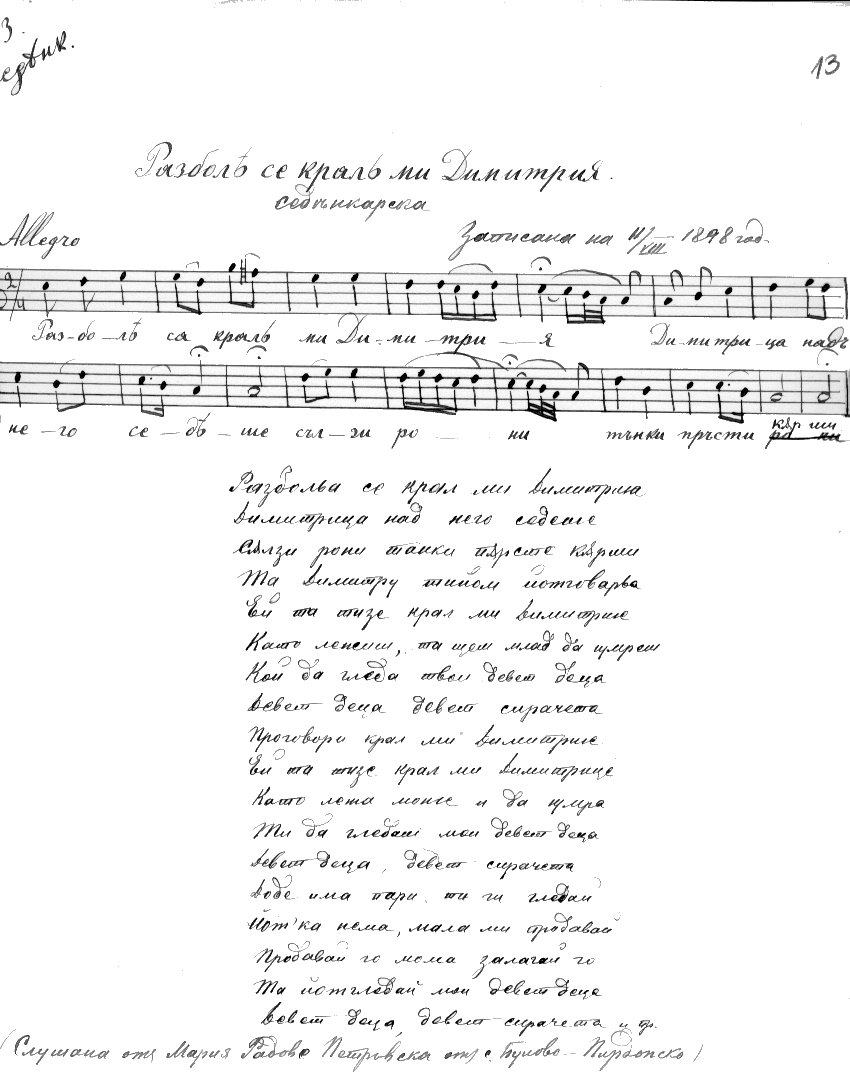 3.
13
Разболѣ се краль ми Димитрия.
седѣнкарска
Allegro
Записана на 11/VIII 1898 год.
Раз-бо-лѣ са краль ми Ди-ми-три-я Ди-ми три-ца надъ
не-го се-дѣ-ше съл-зи ро-ни тънки пръсти кърши
Разболъа се крал ми Димитрию
Димитрица над него седеше
Сѫлзи рони танки пѫрсте кѫрши
Та Димитру тийом йотговаръа
Ей та тизе крал ми Димитрию
Като лежиш, та щеш млад да умреш
Кой да гледа твои девет деца
Девет деца девет сирачета
Проговори крал ми Димитрию
Ей та тизе крал ми Димитрице
Като лежа може и да умра
Ти да гледаш мои девет деца
Девет деца, девет сирачета
Доде има пари ти ги гледай
Йот'ка нема, мала ми продавай
Продавай го мома залагай го
Та йотгледай мои девет деца
Девет деца, девет сирачета и пр.
(Слушана отъ Мария Радово Петровска отъ с. Булово-Пирдопско)